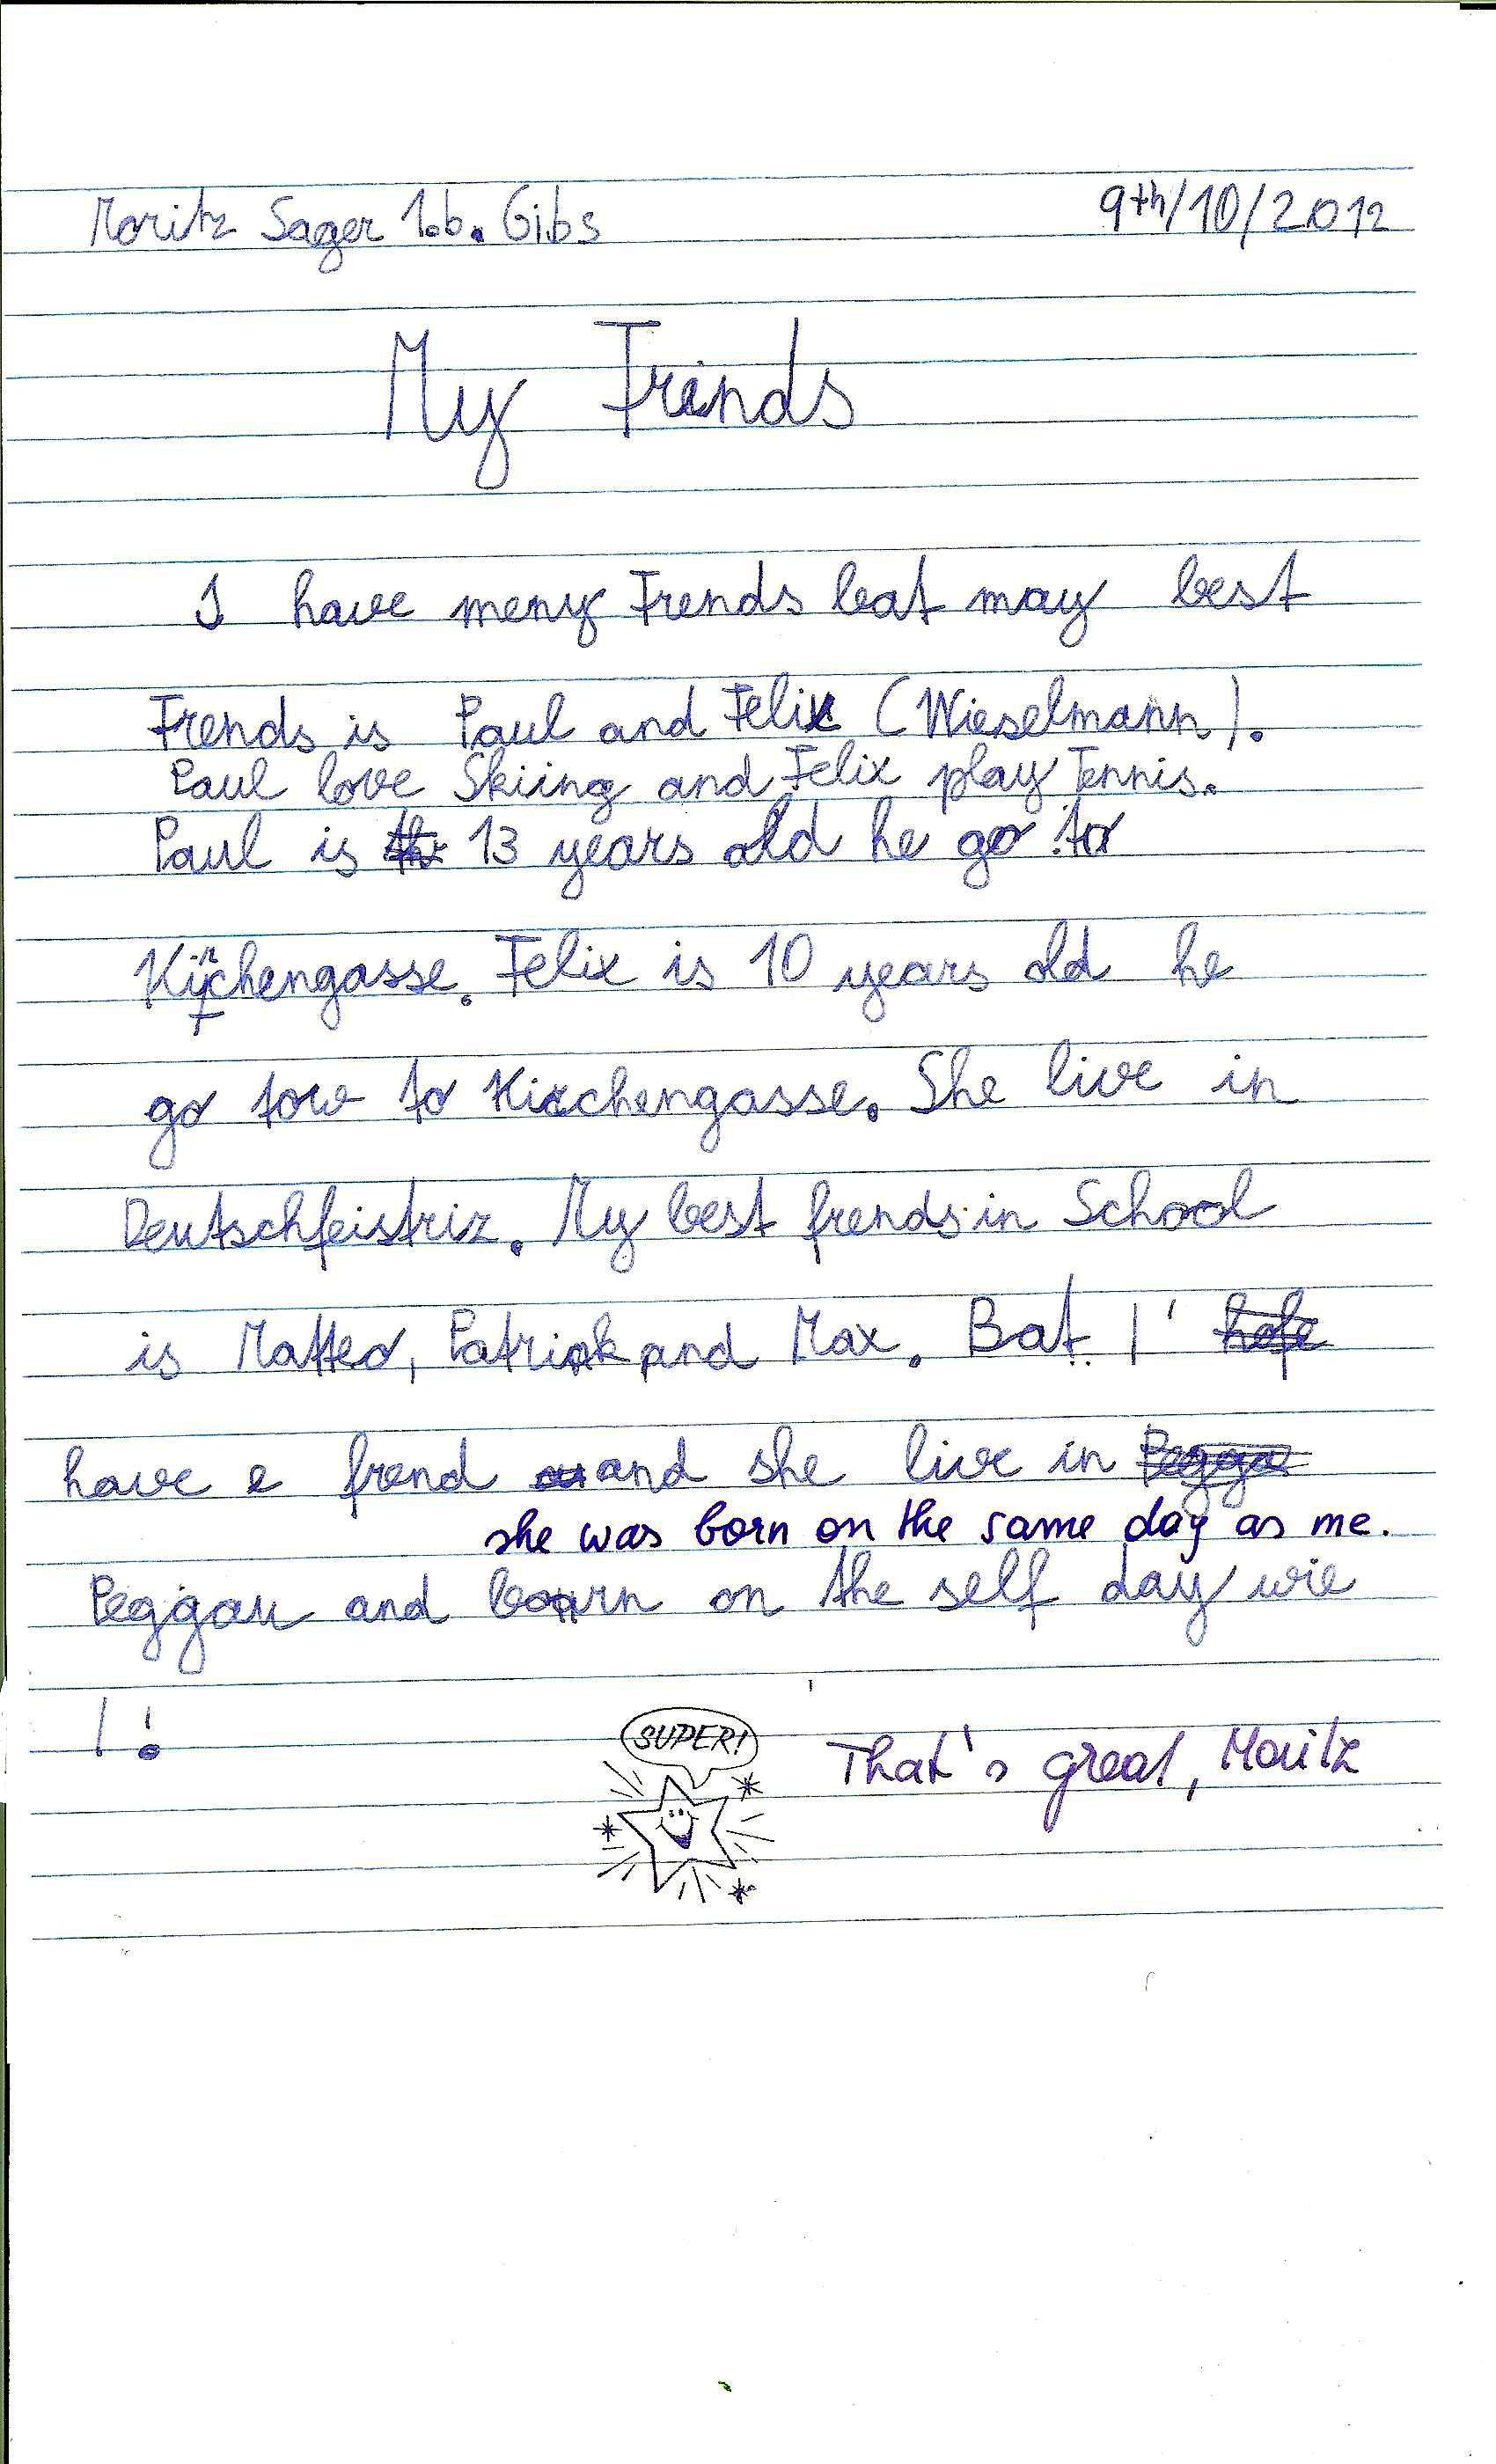 Moritz Sager 1.b. Gibs 9th/10/2012
My Freinds
I have meny Frends bat may best
Frends is Paul and Felix (Wieselmann).
Paul love Skiing and Felix play Tennis.
Paul is 13 years old he go to
Kirchengasse. Felix is 10 years old he
go tow to Kirchengasse. She live in
Deutschfeistriz. My best frends in School
is Matteo, Patrick and Max. Bat I'
have e frend and she live in
she was born on the same day as me.
Peggau and born on the self day wie
I!
SUPER!
That's great, Moritz